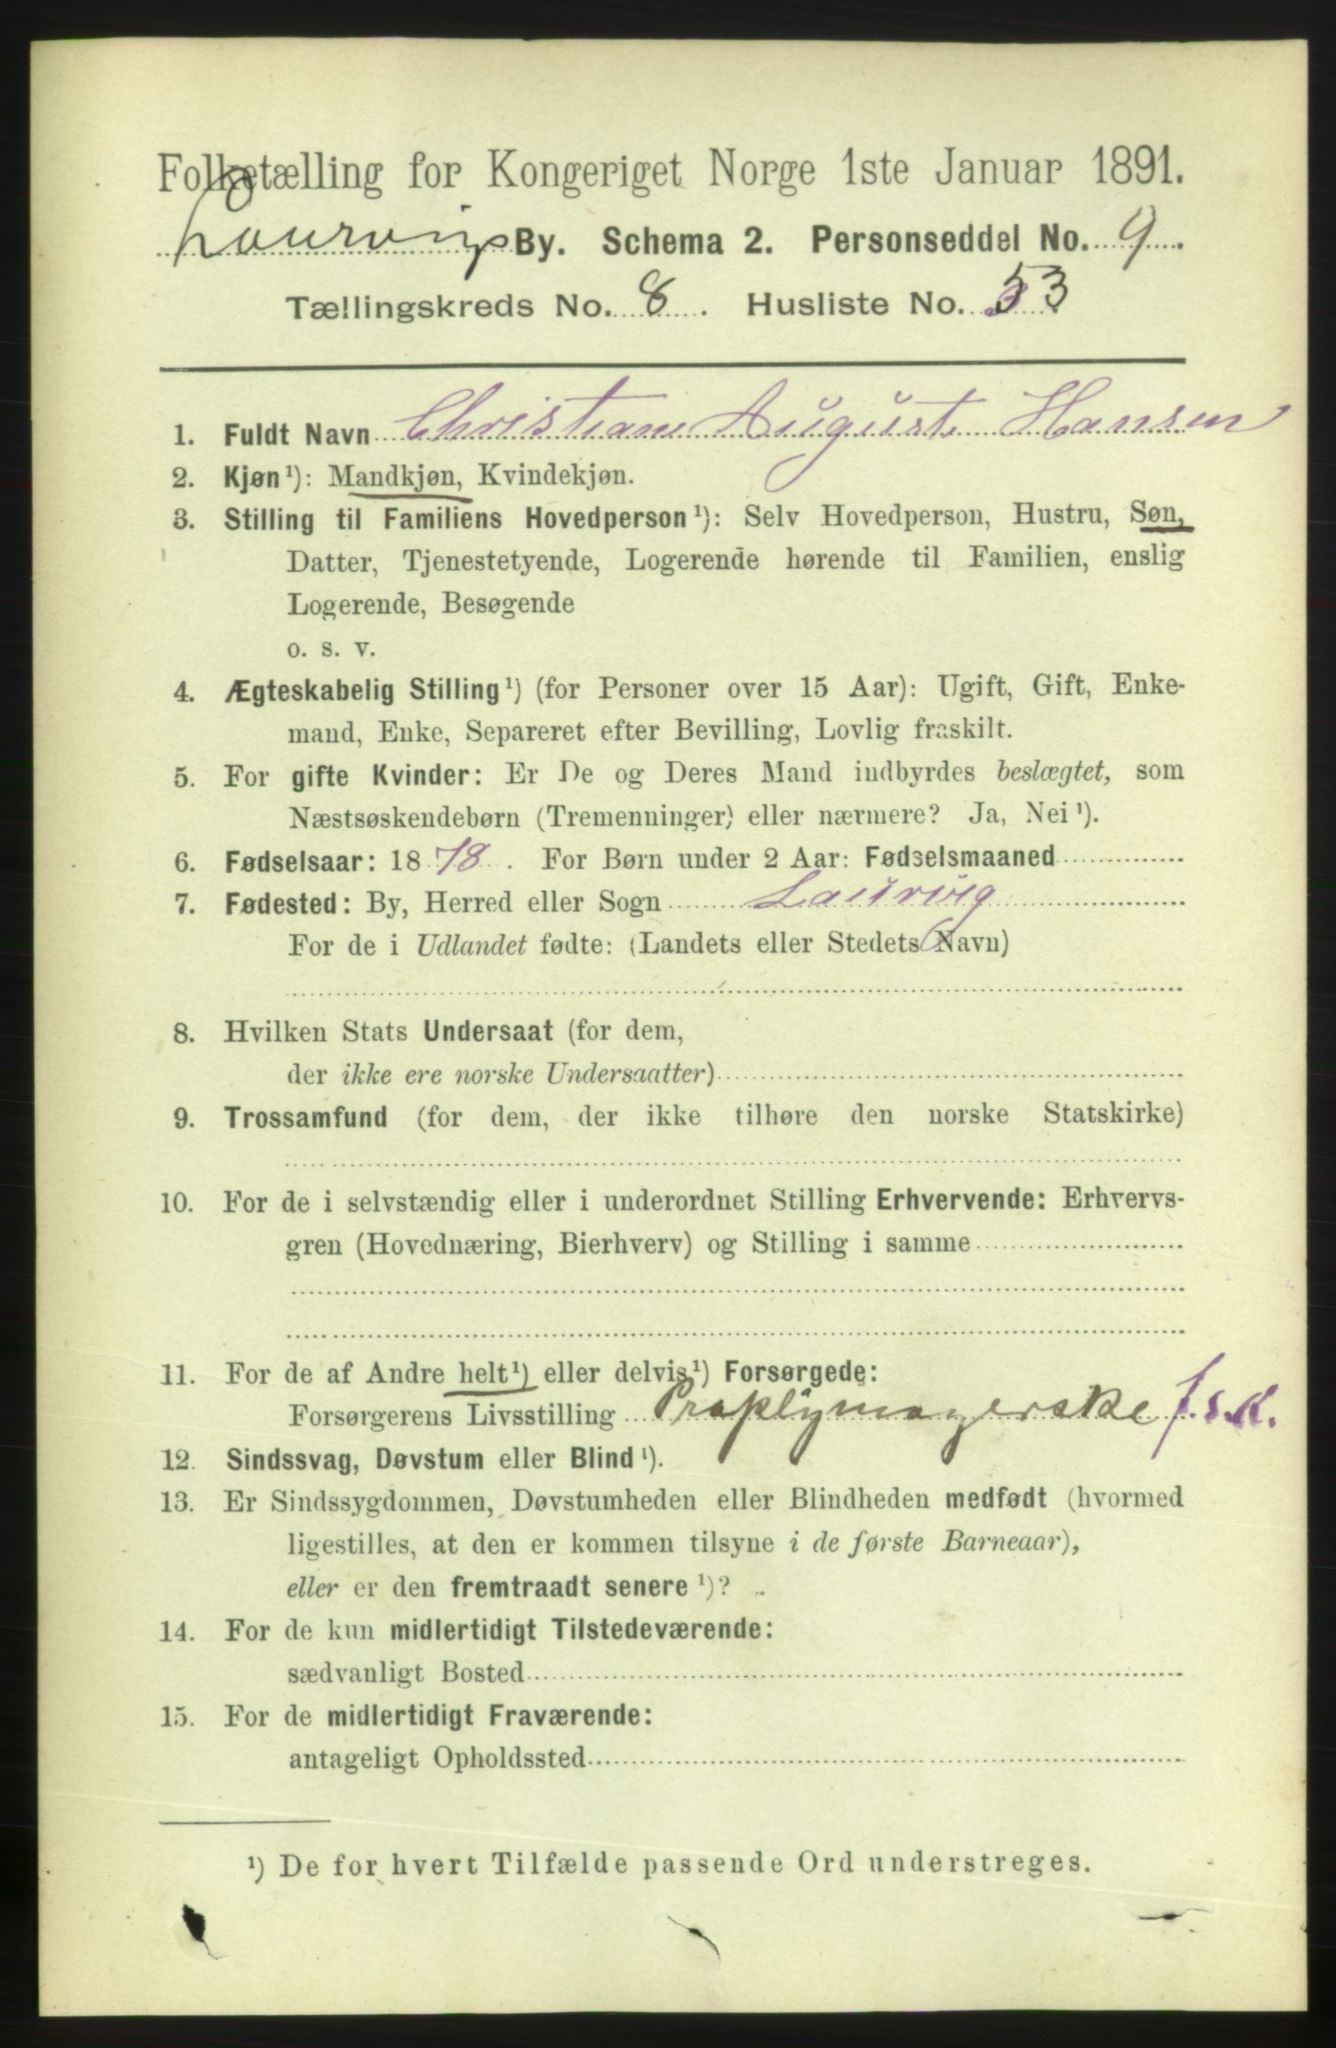 Folketælling for Kongeriget Norge 1ste Januar 1891.
Laurvigs By. Schema 2. Personseddel No. 9.
Tællingskreds No. 8. Husliste No. 53
1. Fuldt Navn Christian August Hansen
2. Kjøn¹): Mandkjøn, Kvindekjøn.
3. Stilling til Familiens Hovedperson¹): Selv Hovedperson, Hustru, Søn,
Datter, Tjenestetyende, Logerende hørende til Familien, enslig
Logerende, Besøgende
o. s. v.
4. Ægteskabelig Stilling¹) (for Personer over 15 Aar): Ugift, Gift, Enke-
mand, Enke, Separeret efter Bevilling, Lovlig fraskilt.
5. For gifte Kvinder: Er De og Deres Mand indbyrdes beslægtet, som
Næstsøskendebørn (Tremenninger) eller nærmere? Ja, Nei¹).
6. Fødselsaar: 1878. For Børn under 2 Aar: Fødselsmaaned
7. Fødested: By, Herred eller Sogn Laurvig
For de i Udlandet fødte: (Landets eller Stedets Navn)
8. Hvilken Stats Undersaat (for dem,
der ikke ere norske Undersaatter)
9. Trossamfund (for dem, der ikke tilhøre den norske Statskirke)
10. For de i selvstændig eller i underordnet Stilling Erhvervende: Erhvervs-
gren (Hovednæring, Bierhverv) og Stilling i samme
11. For de af Andre helt¹) eller delvis¹) Forsørgede:
Forsørgerens Livsstilling f.s.k.
12. Sindssvag, Døvstum eller Blind¹).
13. Er Sindssygdommen, Døvstumheden eller Blindheden medfødt (hvormed
ligestilles, at den er kommen tilsyne i de første Barneaar),
eller er den fremtraadt senere¹)?
14. For de kun midlertidigt Tilstedeværende:
sædvanligt Bosted
15. For de midlertidigt Fraværende:
antageligt Opholdssted
¹) De for hvert Tilfælde passende Ord understreges.